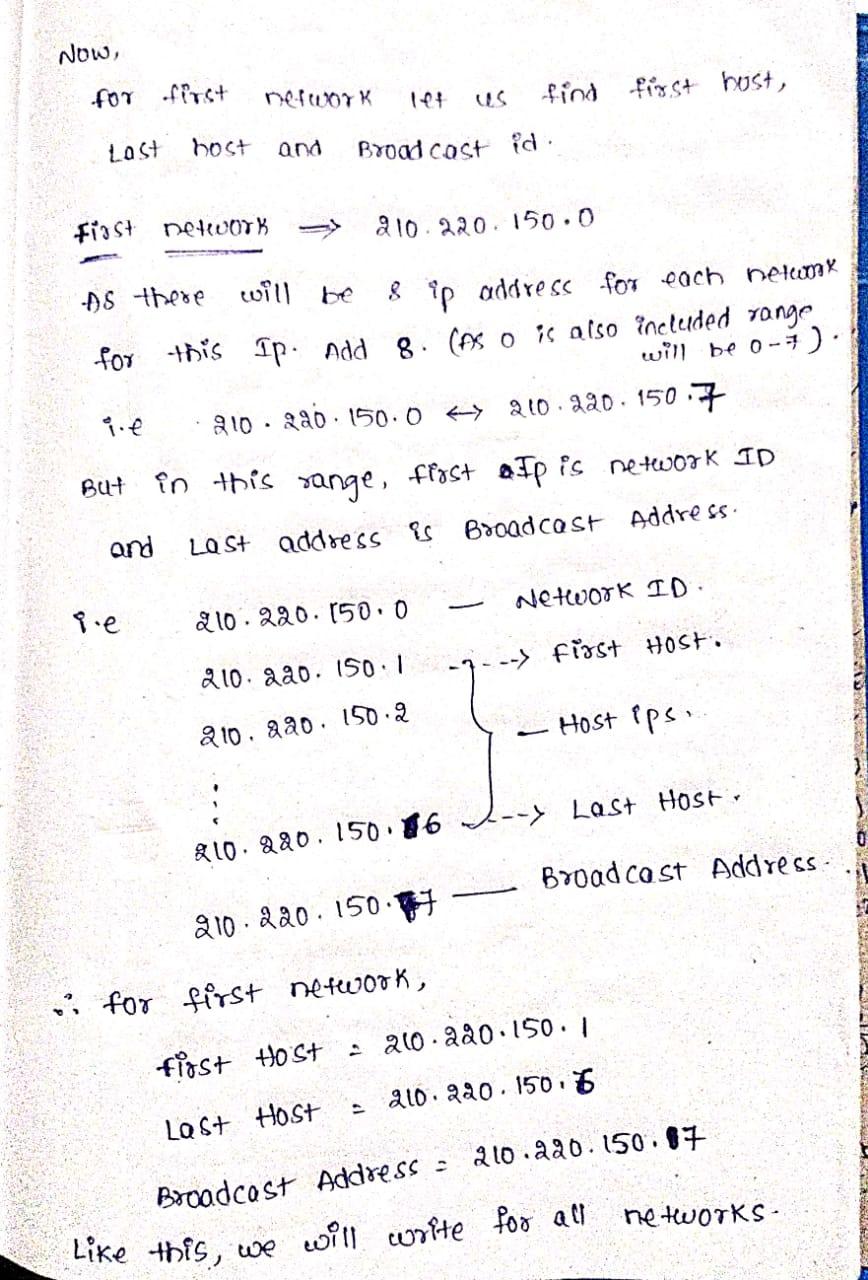 Now,
for first network let us find first host,
Last host and Broadcast id.
First network ⇒ 210.220.150.0
As there will be 8 ip address for each network
for this Ip. Add 8. (As 0 is also included range
will be 0-7).
i.e 210.220.150.0 ↔ 210.220.150.7
But in this range, first Ip is network ID
and Last address is Broadcast Address.
i.e 210.220.150.0 — Network ID.
210.220.150.1 ---> First Host.
210.220.150.2 — Host ips.
⋮
210.220.150.6 ---> Last Host.
210.220.150.7 — Broadcast Address.
∴ for first network,
first Host = 210.220.150.1
Last Host = 210.220.150.6
Broadcast Address = 210.220.150.7
Like this, we will write for all networks.